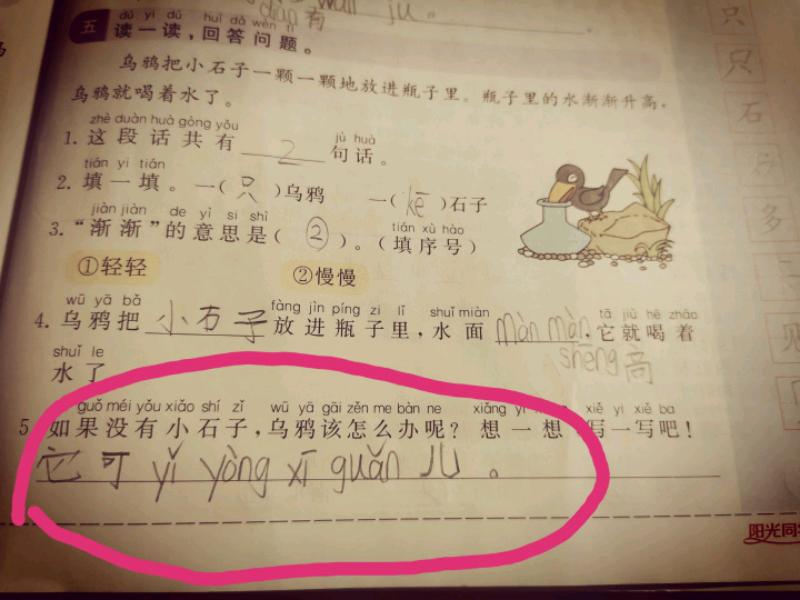 diàn 有 wǎn jú 。
dú yì dú huí dá wèn tí
五 读一读，回答问题。
乌鸦把小石子一颗一颗地放进瓶子里。瓶子里的水渐渐升高，
乌鸦就喝着水了。
zhè duàn huà gòng yǒu jù huà
1. 这段话共有 2 句话。
tián yì tián
2. 填一填。一(只)乌鸦 一(kē)石子
jiàn jiàn de yì si shì tián xù hào
3. “渐渐”的意思是(②)。(填序号)
①轻轻 ②慢慢
wū yā bǎ fàng jìn píng zi lǐ shuǐ miàn tā jiù hē zháo
4. 乌鸦把 小石子 放进瓶子里，水面 màn màn ，它就喝着
shuǐ le shēng高
水了
guǒ méi yǒu xiǎo shí zǐ wū yā gāi zěn me bàn ne xiǎng yì xiě yi xiě ba
5 如果没有小石子，乌鸦该怎么办呢？想一想，写一写吧！
它可 yǐ yòng xī guǎn 儿 。
阳光同
只
只
石
多
见